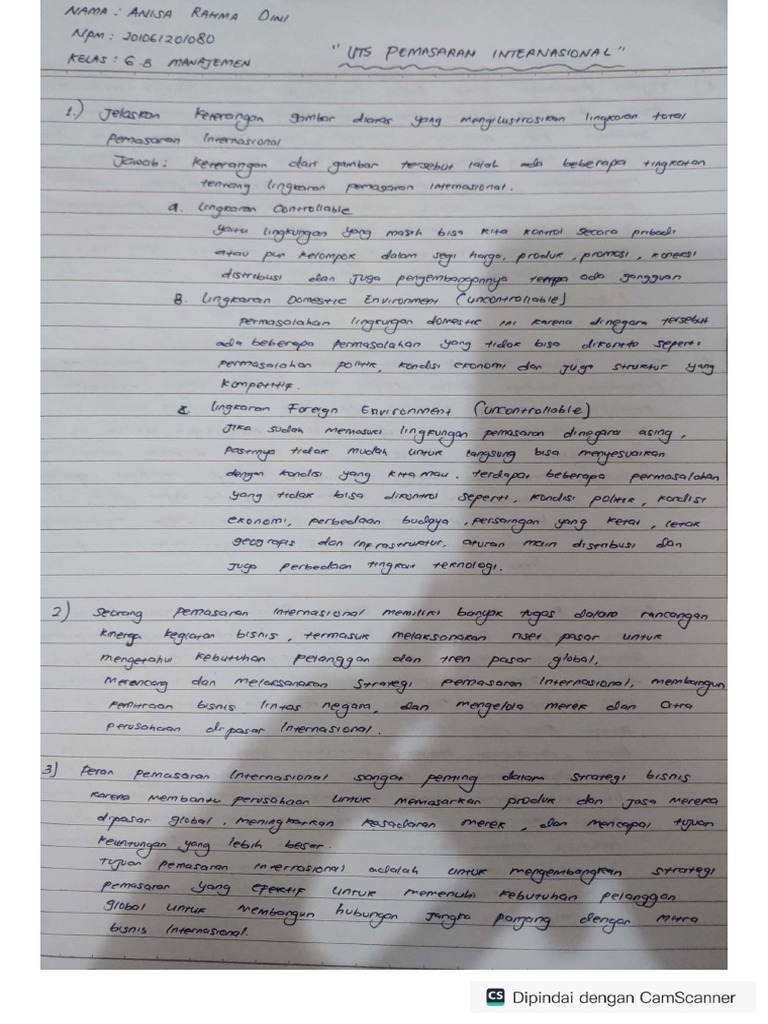 NAMA : ANISA RAHMA DINI
NPM : 201061201080
KELAS : 6 B MANAJEMEN
"UTS PEMASARAN INTERNASIONAL"
1.) Jelaskan keterangan gambar diatas yang mengilustrasikan lingkaran total
pemasaran internasional
Jawab : keterangan dari gambar tersebut ialah ada beberapa tingkatan
tentang lingkaran pemasaran internasional.
a. Lingkaran Controllable
yaitu lingkungan yang masih bisa kita kontrol secara pribadi
atau pun kelompok dalam segi harga, produk, promosi, koneksi
distribusi dan juga pengembangannya tanpa ada gangguan
B. Lingkaran Domestic Environment (uncontrollable)
permasalahan lingkungan domestic ini karena dinegara tersebut
ada beberapa permasalahan yang tidak bisa dikontro seperti
permasalahan politik, kondisi ekonomi dan juga struktur yang
kompetitif.
c. Lingkaran Foreign Environment (uncontrollable)
Jika sudah memasuki lingkungan pemasaran dinegara asing,
pastinya tidak mudah untuk langsung bisa menyesuaikan
dengan kondisi yang kita mau. terdapat beberapa permasalahan
yang tidak bisa dikontrol seperti, kondisi politik, kondisi
ekonomi, perbedaan budaya, persaingan yang ketat, letak
geografis dan infrastruktur, aturan main distribusi dan
juga perbedaan tingkat teknologi.
2) Seorang pemasaran internasional memiliki banyak tugas dalam rancangan
kinerja kegiatan bisnis, termasuk melaksanakan riset pasar untuk
mengetahui kebutuhan pelanggan dan tren pasar global.
Merencang dan melaksanakan strategi pemasaran internasional, membangun
kemitraan bisnis lintas negara, dan mengelola merek dan citra
perusahaan di pasar internasional.
3) Peran pemasaran internasional sangat penting dalam strategi bisnis
karena membantu perusahaan untuk memasarkan produk dan jasa mereka
dipasar global, meningkatkan kesadaran merek, dan mencapai tujuan
keuntungan yang lebih besar.
Tujuan pemasaran internasional adalah untuk mengembangkan strategi
pemasaran yang efektif untuk memenuhi kebutuhan pelanggan
global untuk membangun hubungan jangka panjang dengan mitra
bisnis internasional.
CS Dipindai dengan CamScanner